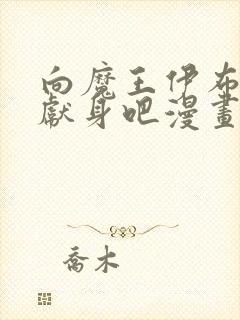 向魔王伊布
獻身吧漫畫
喬木